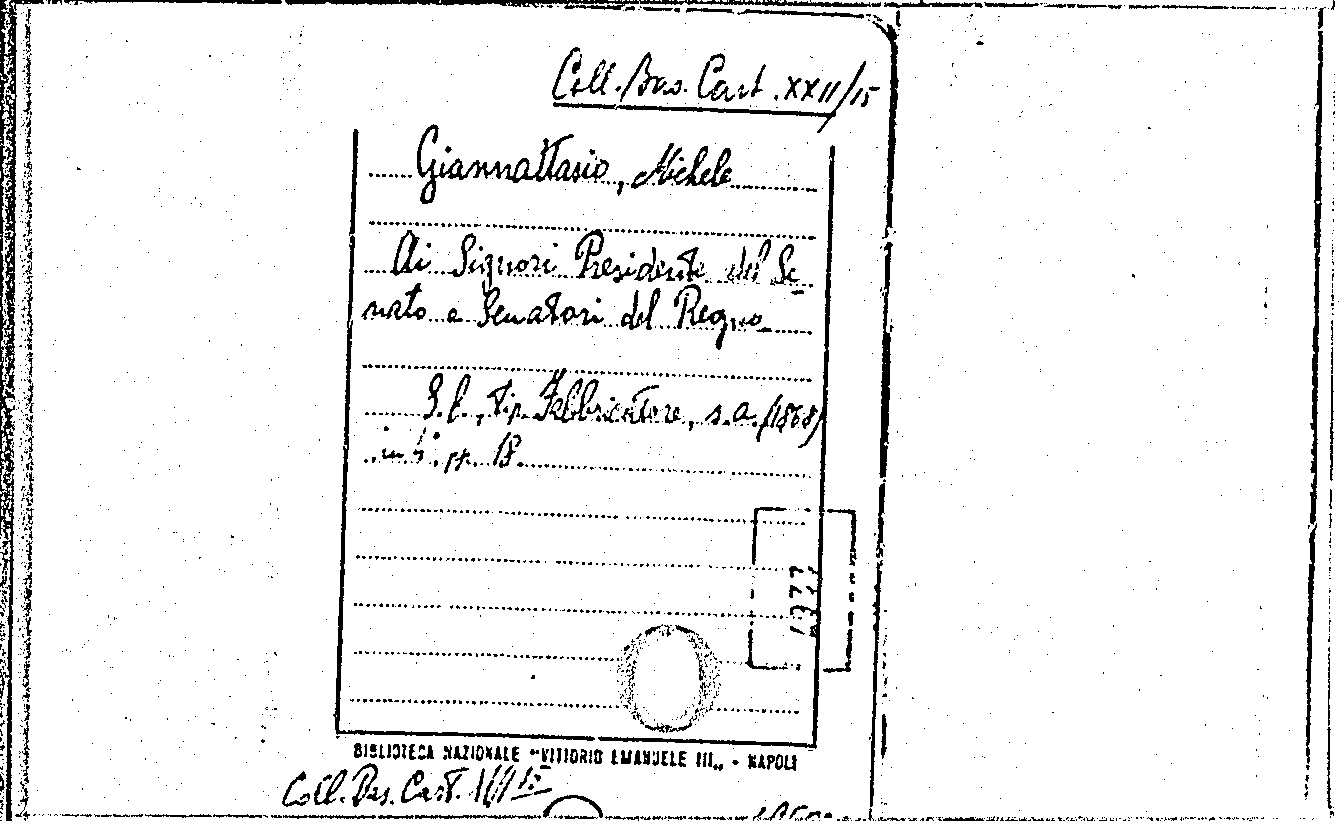 Coll. Bas. Cart. XXII/15
Giannattasio, Michele
Ai Signori Presidente del Se-
nato e Senatori del Regno
S.l., tip. Fabbricatore, s.a. (1868)
in 4°, pp. 18.
BIBLIOTECA NAZIONALE "VITTORIO EMANUELE III„ - NAPOLI
Coll. Bas. Cart.